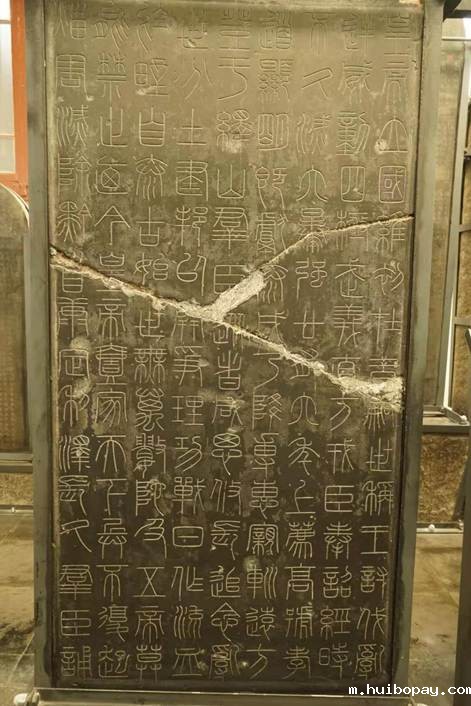 皇帝立國維初在昔嗣世稱王討伐亂
逆威動四極武義直方戎臣奉詔經時
不久滅六暴強廿有六年上薦高號孝
道顯明既獻泰成乃降尃惠親巡遠方
登于繹山羣臣從者咸思攸長追念亂
世分土建邦以開爭理功戰日作流血
於野自泰古始世無萬數陀及五帝莫
能禁止迺今皇帝壹家天下兵不復起
災害滅除黔首康定利澤長久羣臣誦
m.huibopay.com